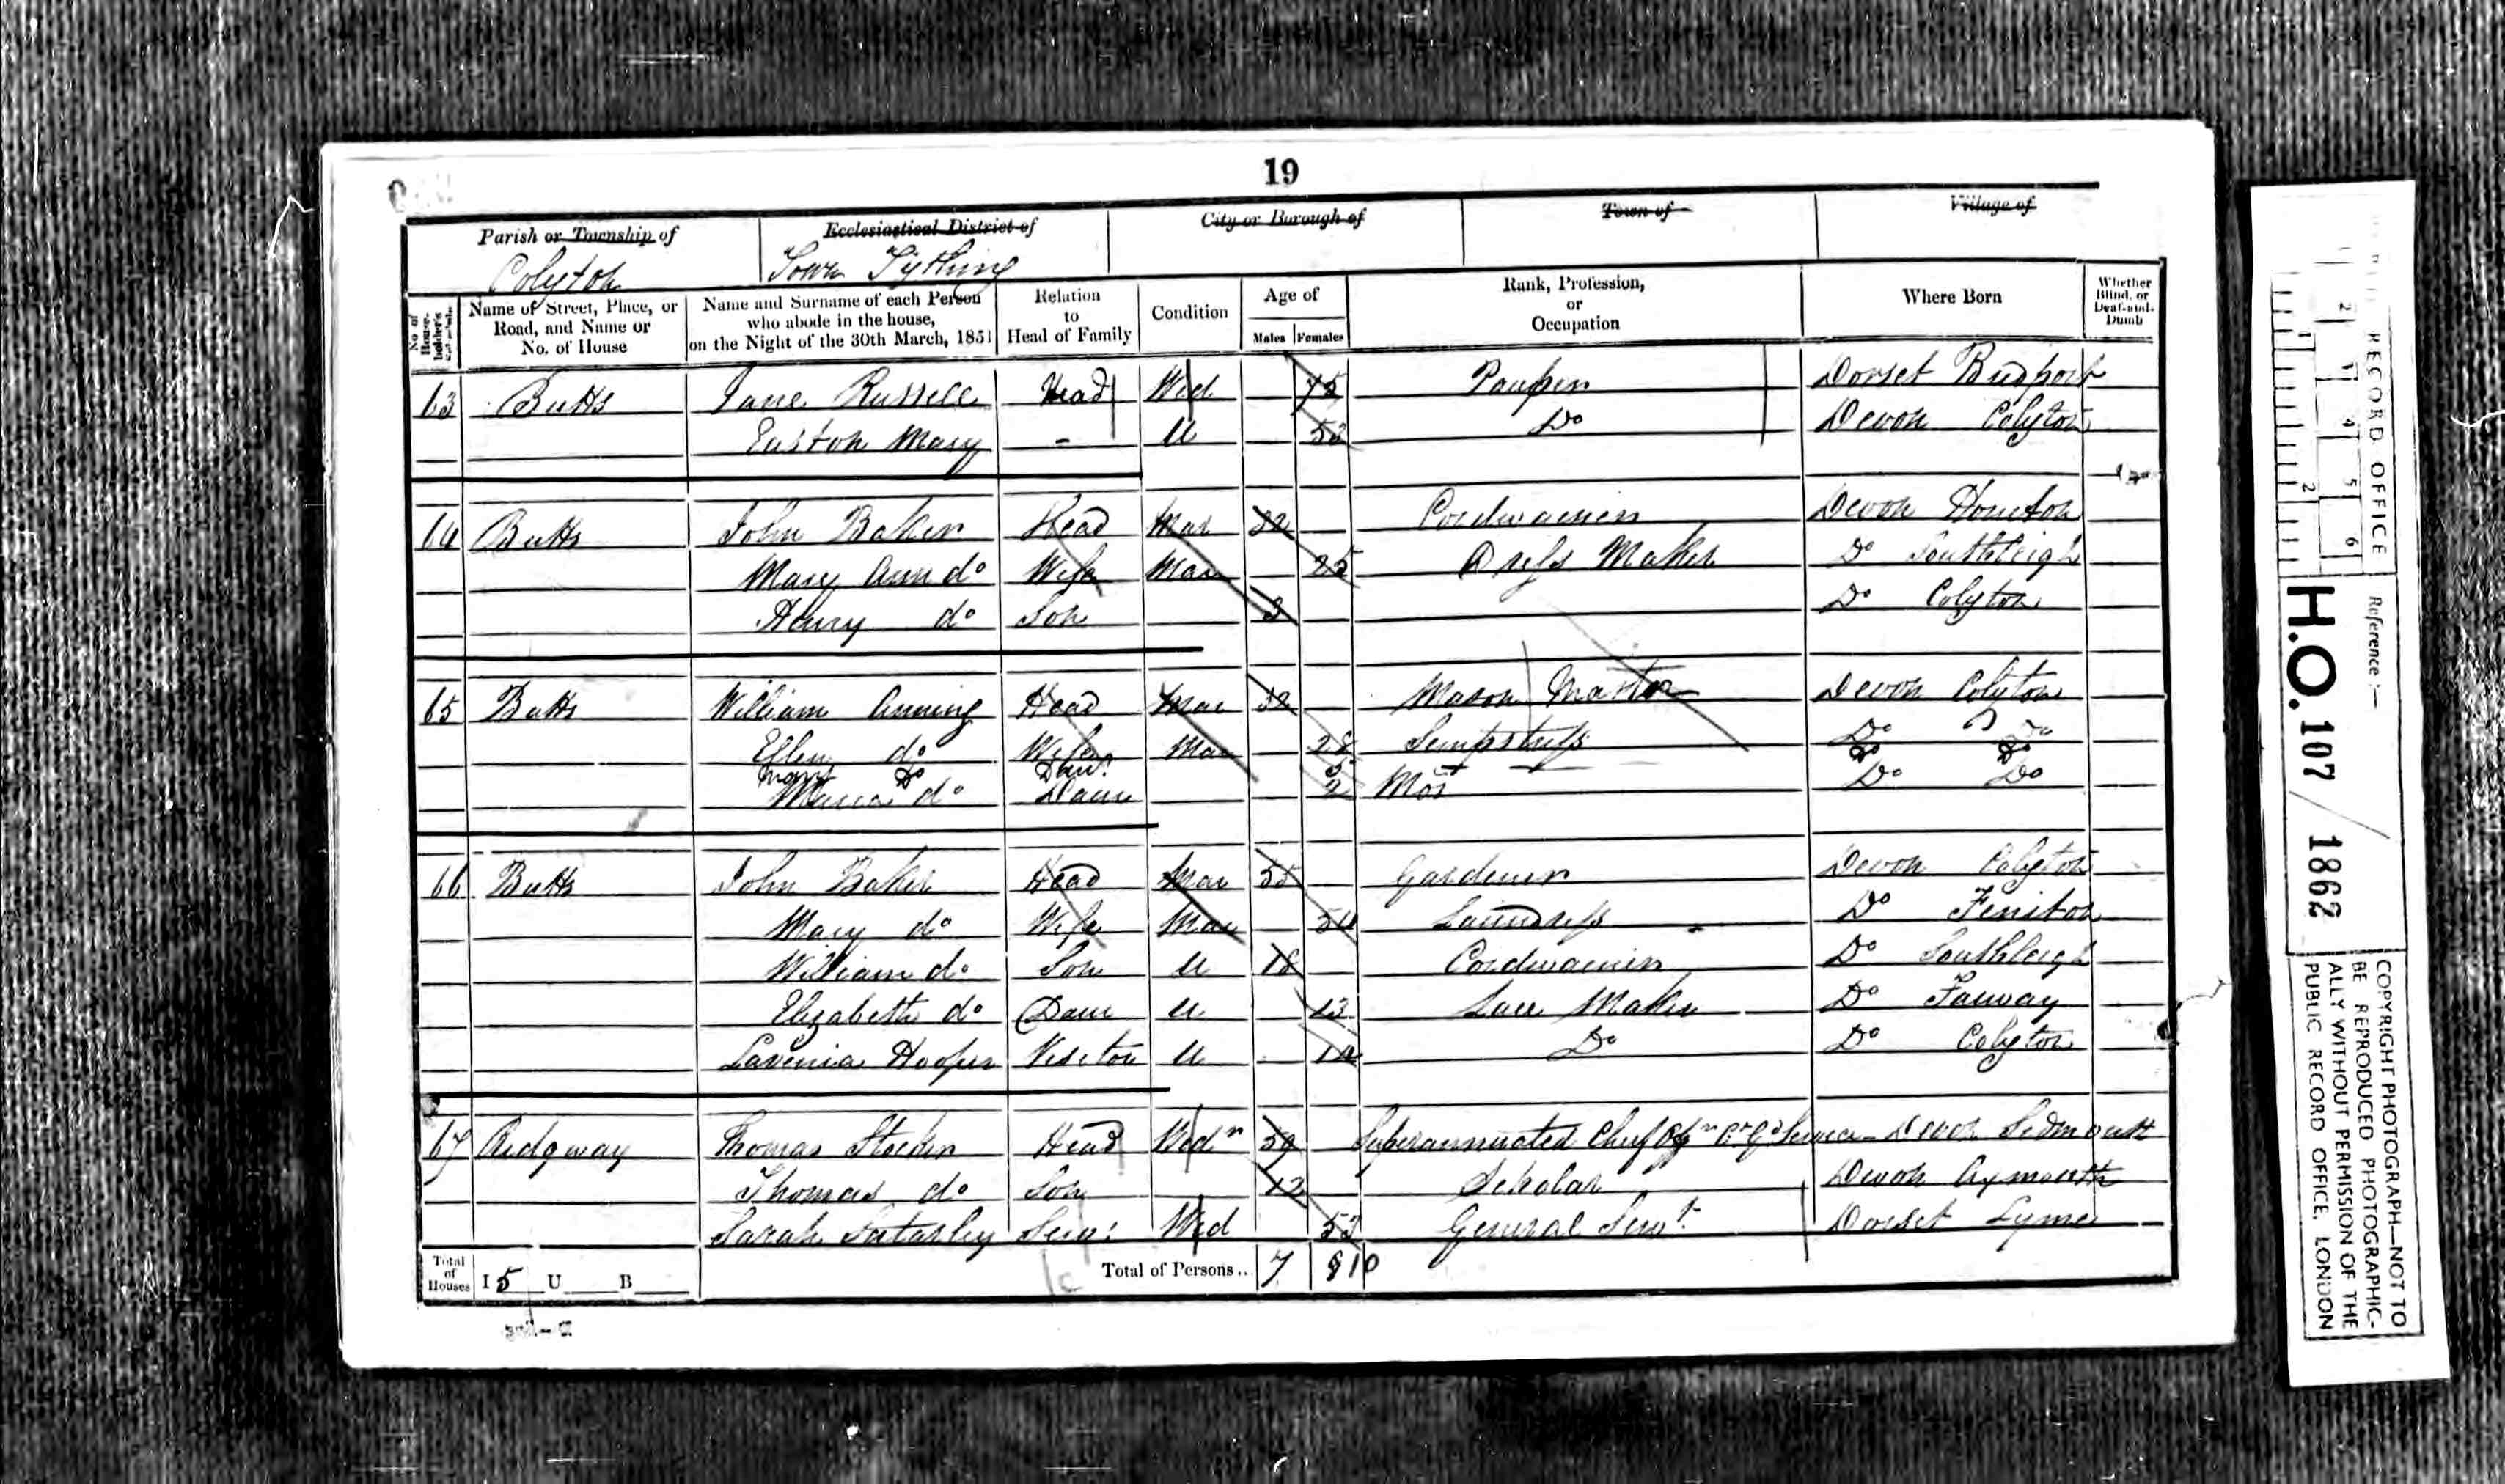 19
Parish or Township of
Colyton
Ecclesiastical District of
Town Tything
City or Borough of
Town of
Village of
No. of House-holder's
Name of Street, Place, or Road, and Name or No. of House
Name and Surname of each Person who abode in the house, on the Night of the 30th March, 1851
Relation to Head of Family
Condition
Age of
Males Females
Rank, Profession, or Occupation
Where Born
Whether Blind, or Deaf-and-Dumb
63 Butts Jane Russell Head Wid 75 Pauper Dorset Bridport
Easton Mary - U Do Devon Colyton
64 Butts John Baker Head Mar 32 Cordwainer Devon Honiton
Mary Ann do Wife Mar 25 Dress Maker Do Southleigh
Henry do Son 3 Do Colyton
65 Butts William Anning Head Mar 32 Mason Master Devon Colyton
Ellen do Wife Mar 28 Sempstress Do Do
Mary Do Daur 5 Do Do
Maria do Daur 2 Mos Do Do
66 Butts John Baker Head Mar 55 Gardener Devon Colyton
Mary do Wife Mar 54 Laundress Do Feniton
William do Son U 18 Cordwainer Do Southleigh
Elizabeth do Daur U 13 Lace Maker Do Farway
Lavinia Hooper Visitor U 14 Do Do Colyton
67 Ridgway Thomas Stocker Head Widr 59 Superannuated Chief Devon Sidmouth
Thomas do Son 12 Scholar Devon
Sarah Serv: Wid 53 General Servt. Dorset Lyme
Total of Houses I 5 U B
Total of Persons.. 7 8 10
PUBLIC RECORD OFFICE
Reference :-
H.O. 107 / 1862
COPYRIGHT PHOTOGRAPH—NOT TO
BE REPRODUCED PHOTOGRAPHIC-
ALLY WITHOUT PERMISSION OF THE
PUBLIC RECORD OFFICE, LONDON